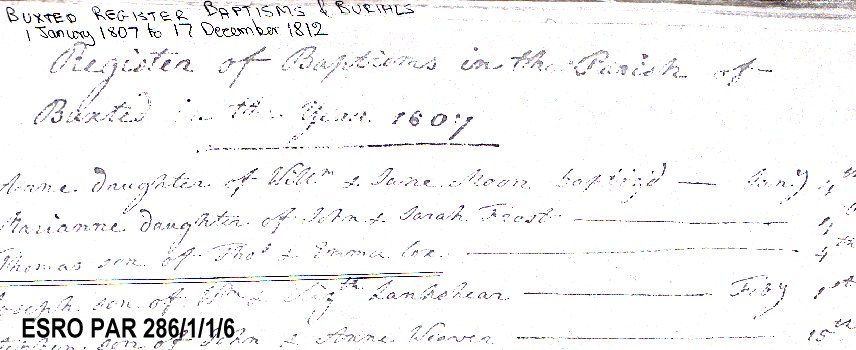 BUXTED REGISTER BAPTISMS & BURIALS
1 January 1807 to 17 December 1812
Register of Baptisms in the Parish of
Buxted in the Year 1807
Anne daughter of Willm & Jane Moon baptiz'd — Jany 4th
Marianne daughter of John & Sarah Frost —
Thomas son of Thos & Emma Cox — 4th
Joseph son of & Elizth — Feby 1st
son of John & Anne Weaver — 15th
ESRO PAR 286/1/1/6